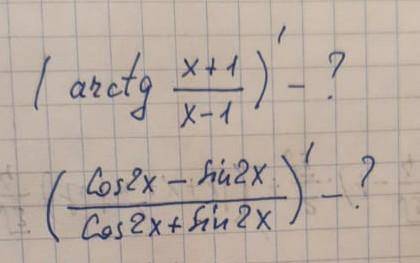 ( arctg (x+1)/(x-1) )' - ?
( (Cos2x - Sin2x)/(Cos2x + Sin2x) )' - ?